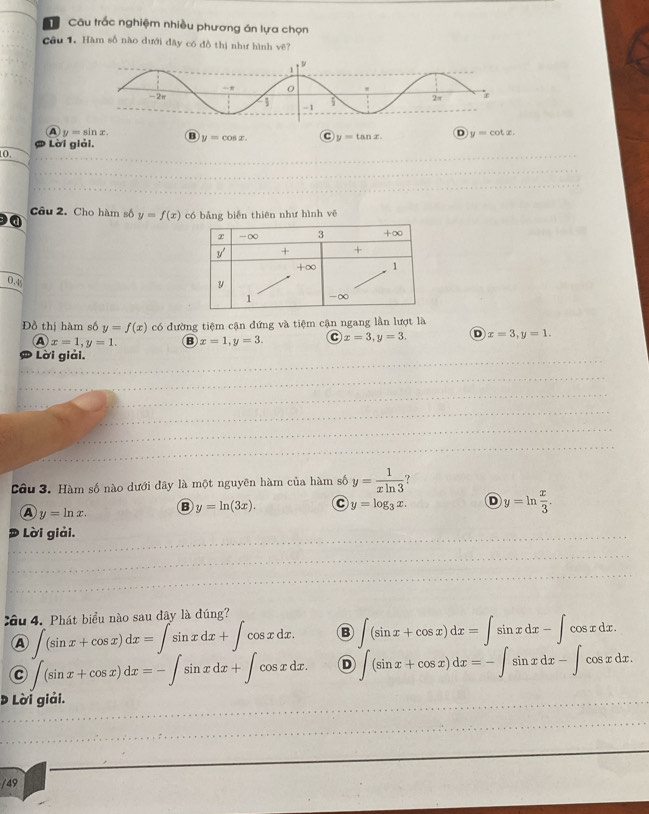 1 Câu trắc nghiệm nhiều phương án lựa chọn
Câu 1. Hàm số nào dưới đây có đồ thị như hình vẽ?
y
1
−2π −π O π 2π x
−π/2 −1 π/2
A y = sin x. B y = cos x. C y = tan x. D y = cot x.
Lời giải.
Câu 2. Cho hàm số y = f(x) có bảng biến thiên như hình vẽ
x −∞ 3 +∞
y′ + +
+∞ 1
y
1 −∞
Đồ thị hàm số y = f(x) có đường tiệm cận đứng và tiệm cận ngang lần lượt là
A x = 1, y = 1. B x = 1, y = 3. C x = 3, y = 3. D x = 3, y = 1.
Lời giải.
Câu 3. Hàm số nào dưới đây là một nguyên hàm của hàm số y = 1/(x ln 3)?
A y = ln x. B y = ln(3x). C y = log₃ x. D y = ln x/3.
Lời giải.
Câu 4. Phát biểu nào sau đây là đúng?
A ∫(sin x + cos x) dx = ∫ sin x dx + ∫ cos x dx. B ∫(sin x + cos x) dx = ∫ sin x dx − ∫ cos x dx.
C ∫(sin x + cos x) dx = −∫ sin x dx + ∫ cos x dx. D ∫(sin x + cos x) dx = −∫ sin x dx − ∫ cos x dx.
Lời giải.
/49